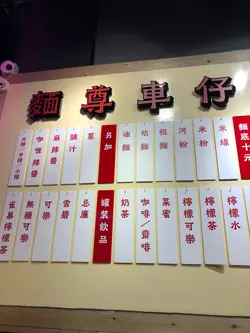 麵尊車仔
麵底十元
米線
米粉
河粉
粗麵
幼麵
油麵
另加
蔥
腩汁
麻辣醬
咖喱辣醬
大辣/中辣/小辣
檸檬水
檸檬茶
檸檬可樂
菜蜜
咖啡/齋啡
奶茶
罐裝飲品
忌廉
雪碧
可樂
無糖可樂
雀巢檸檬茶